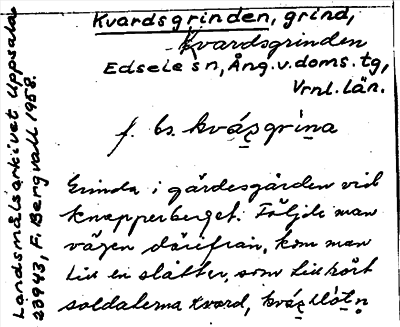 Kvardsgrinden, grind,
Kvardsgrinden
Edsele sn, Ång.v.doms.tg,
Vrnl.län.
f. bs. kvázgrina
Grinda i gärdesgården vid
Knapperberget. Följde man
vägen därifrån, kom man
till en slåtter, som tillhört
soldaterna Kvard, kváz
Landsmålsarkivet Uppsala
23943, F. Bergvall 1958.